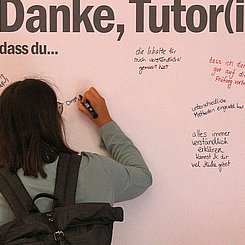 Danke, Tutor(i
dass du...
die Inhalte für
mich verständlich
gemacht hast
dass ich
gut auf die
Prüfung
unterschiedliche
Methoden
alles immer
verständlich
erklären
konntest & dir
viel Mühe gibst